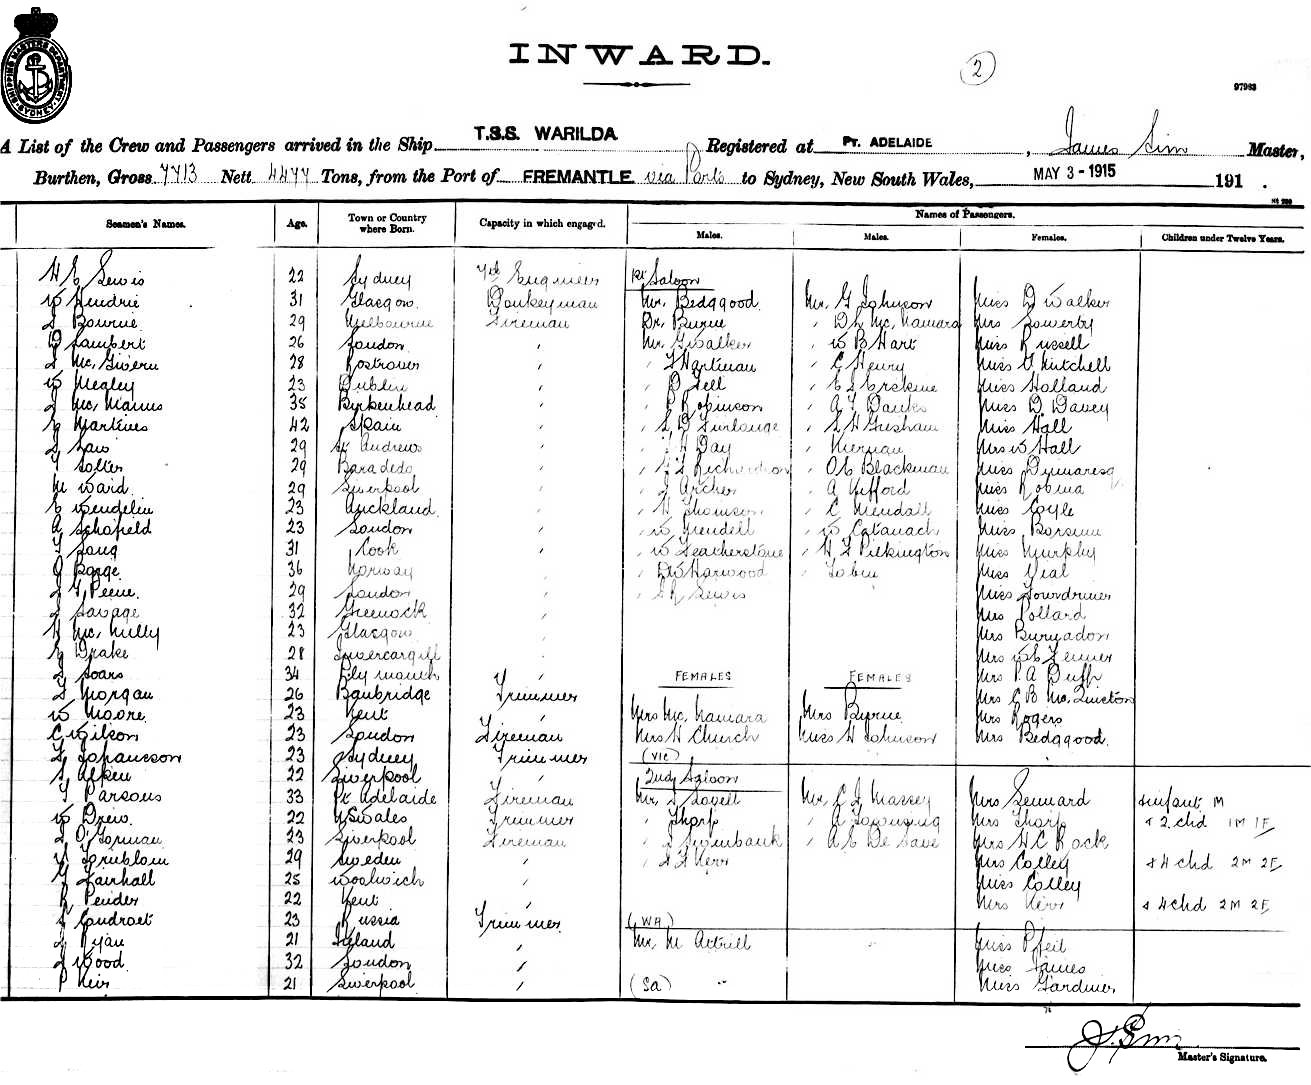 SHIPPING MASTERS DEPARTMENT SYDNEY
INWARD.
2
97963
A List of the Crew and Passengers arrived in the Ship T.S.S. WARILDA Registered at PT. ADELAIDE, James Sim Master,
Burthen, Gross 7713 Nett 4477 Tons, from the Port of FREMANTLE via Ports to Sydney, New South Wales, MAY 3 - 1915 191 .
Seamen's Names. Age. Town or Country where Born. Capacity in which engaged. Names of Passengers.
Males. Males. Females. Children under Twelve Years.
H E Lewis 22 Sydney 7th Engineer 1st Saloon
W Hendrie 31 Glasgow Donkeyman Mr. Bedggood Mr. G Johnson Miss D Walker
Bourne 29 Melbourne Fireman Dr. Burne " D L Mc. Namara Mrs Sowerby
D Lambert 26 London " Mr. G Walker " W B Hart Miss Russell
Mc. Givern 28 Rostrevor " " Hartman " C Henry Miss Mitchell
W Megley 23 Dublin " " Tell " Erskine Miss Holland
J Mc. Manus 35 Birkenhead " " P Robinson " A T Danks Miss D. Davey
Martines 42 Spain " " S D Furlange " S H Gresham Miss Hall
29 St Andrews " " Day " Kiernan Mrs W Hall
29 " " Richardson " Blackman Miss Dumaresq
M Ward 29 Liverpool " " J Archer " A Gifford Miss Robina
Wendelin 23 Auckland " " H Thomson " C Mendall Miss Coyle
A Schofield 23 London " " W Grendell " W Catanach Miss
Lang 31 Cook " " W Featherstone " H F Pilkington Miss Murphy
36 Norway " " Harwood " Tobin Miss Vial
29 London " " Lewis Miss
Savage 32 Greenock " Mrs Pollard
H Mc. Nully 23 Glasgow " Mrs
Drake 28 Invercargill " Mrs
Soars 34 " FEMALES FEMALES Mrs P. A Duff
Morgan 26 Banbridge Trimmer Mrs C B Mc. Quiston
W Moore 23 Kent " Mrs Mc. Namara Mrs Byrne Mrs Rogers
C Wilson 23 London Fireman Mrs H Church Miss H Johnson Mrs Bedggood
Johansson 23 Sydney Trimmer (Vic)
22 Liverpool " 2nd Saloon
Parsons 33 Pt Adelaide Fireman Mr. Lovell Mr. C J Massey Mrs Lennard & infant M
W Drew 22 N S Wales Trimmer " Tharp " A Mrs Tharp & 2 chd 1M 1F
J O'Gorman 23 Liverpool Fireman " Swinbank " A E De Save Mrs H C Rock
29 Sweden " " Kerr Mrs Colley & 4 chd 2M 2F
Fairhall 25 Woolwich " Miss Colley
R Pender 22 Kent " Mrs Kerr & 4 chd 2M 2F
23 Russia Trimmer (WA)
J Ryan 21 Ireland " Mr. M Attrill Miss Pfeil
J Wood 32 London " Miss James
P Neir 21 Liverpool " (Sa) Miss Gardiner
J. Sim
Master's Signature.